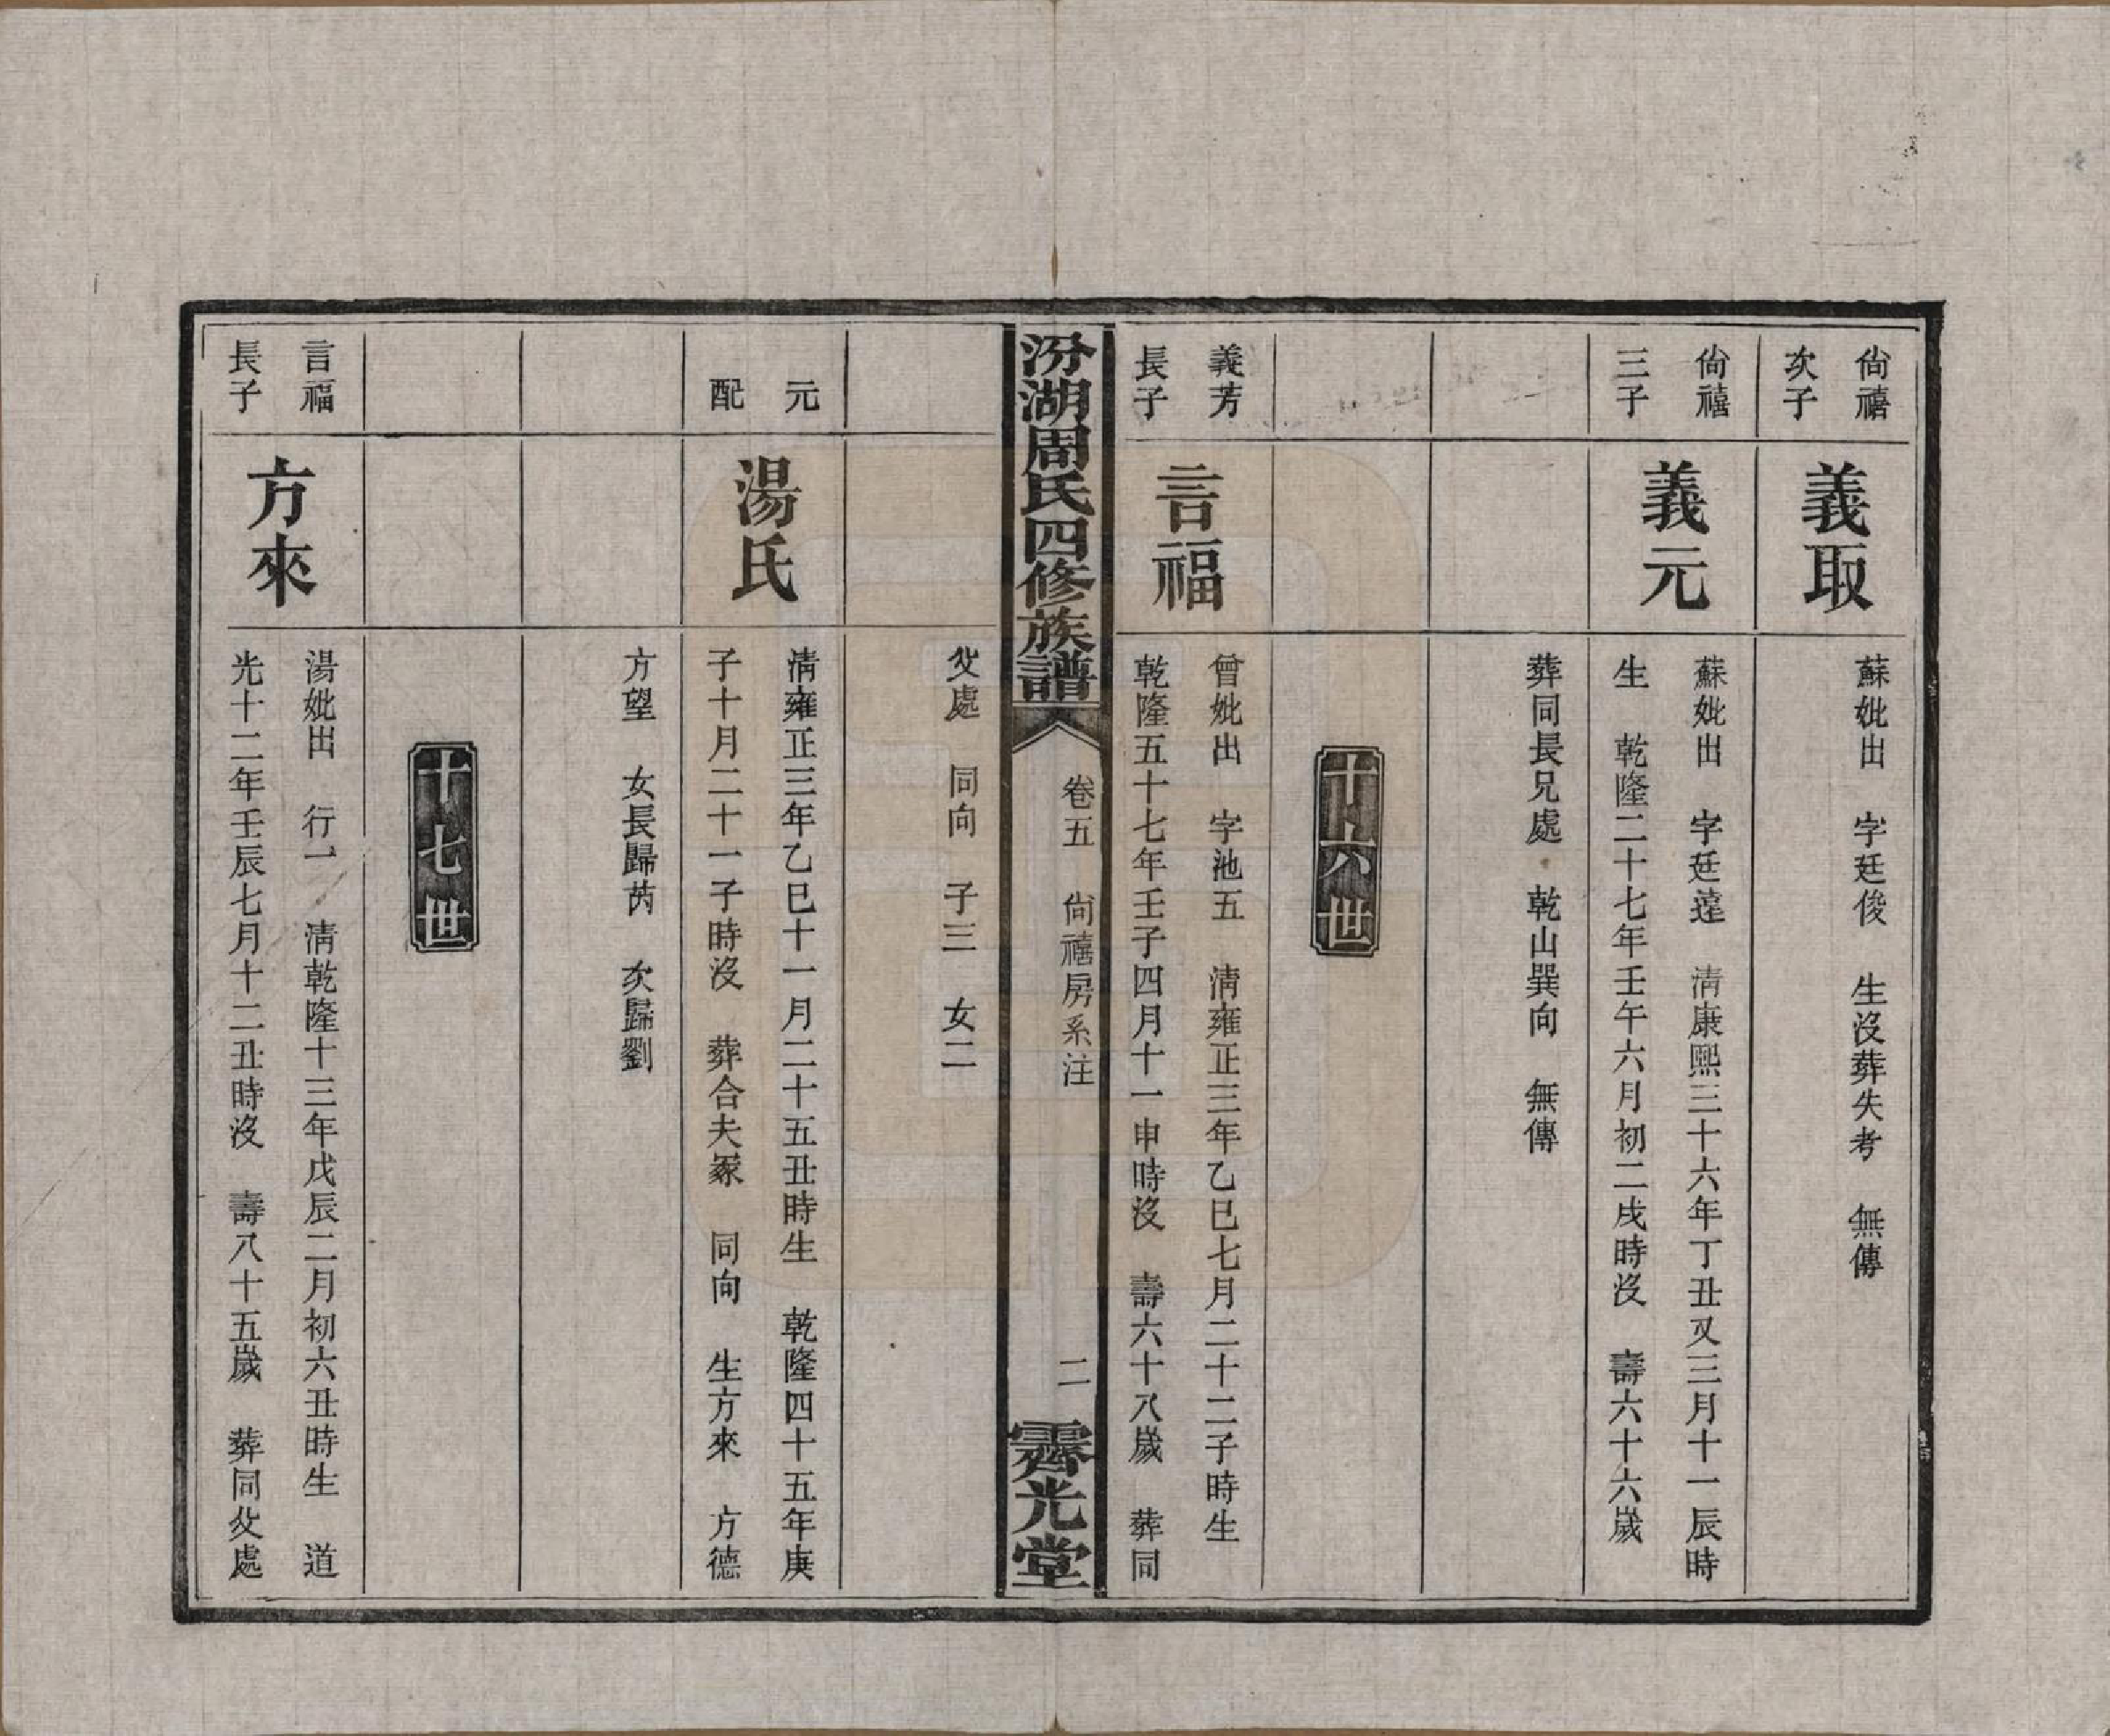 尙禧
次子
義取
蘇妣出　字廷俊　生沒葬失考　無傳
尙禧
三子
義元
蘇妣出　字廷遠　淸康熙三十六年丁丑又三月十一辰時
生　乾隆二十七年壬午六月初二戌時沒　壽六十六歲
葬同長兄處　乾山巽向　無傳
十六世
義芳
長子
言福
曾妣出　字池五　淸雍正三年乙巳七月二十二子時生
乾隆五十七年壬子四月十一申時沒　壽六十八歲　葬同
汾湖周氏四修族譜
卷五　尙禧房系注
二
霽光堂
父處　同向　子三　女二
元
配
湯氏
淸雍正三年乙巳十一月二十五丑時生　乾隆四十五年庚
子十月二十一子時沒　葬合夫冢　同向　生方來　方德
方望　女長歸芮　次歸劉
十七世
言福
長子
方來
湯妣出　行一　淸乾隆十三年戊辰二月初六丑時生　道
光十二年壬辰七月十二丑時沒　壽八十五歲　葬同父處